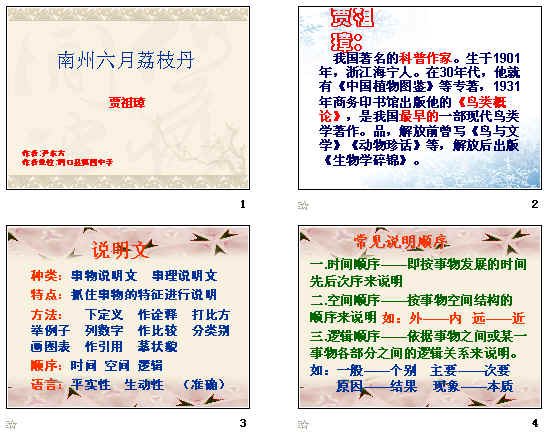 南州六月荔枝丹
贾祖璋
1
贾祖
璋:
我国著名的科普作家。生于1901
年，浙江海宁人。在30年代，他就
有《中国植物图鉴》等专著，1931
年商务印书馆出版他的《鸟类概
论》，是我国最早的一部现代鸟类
学著作。品，解放前曾写《鸟与文
学》《动物珍话》等，解放后出版
《生物学碎锦》。
2
说明文
种类：事物说明文 事理说明文
特点：抓住事物的特征进行说明
方法： 下定义 作诠释 打比方
举例子 列数字 作比较 分类别
画图表 作引用 摹状貌
顺序：时间 空间 逻辑
语言：平实性 生动性 （准确）
3
常见说明顺序
一.时间顺序——即按事物发展的时间
先后次序来说明
二.空间顺序——按事物空间结构的
顺序来说明 如：外——内 远——近
三.逻辑顺序——依据事物之间或某一
事物各部分之间的逻辑关系来说明。
如：一般——个别 主要——次要
原因——结果 现象——本质
4